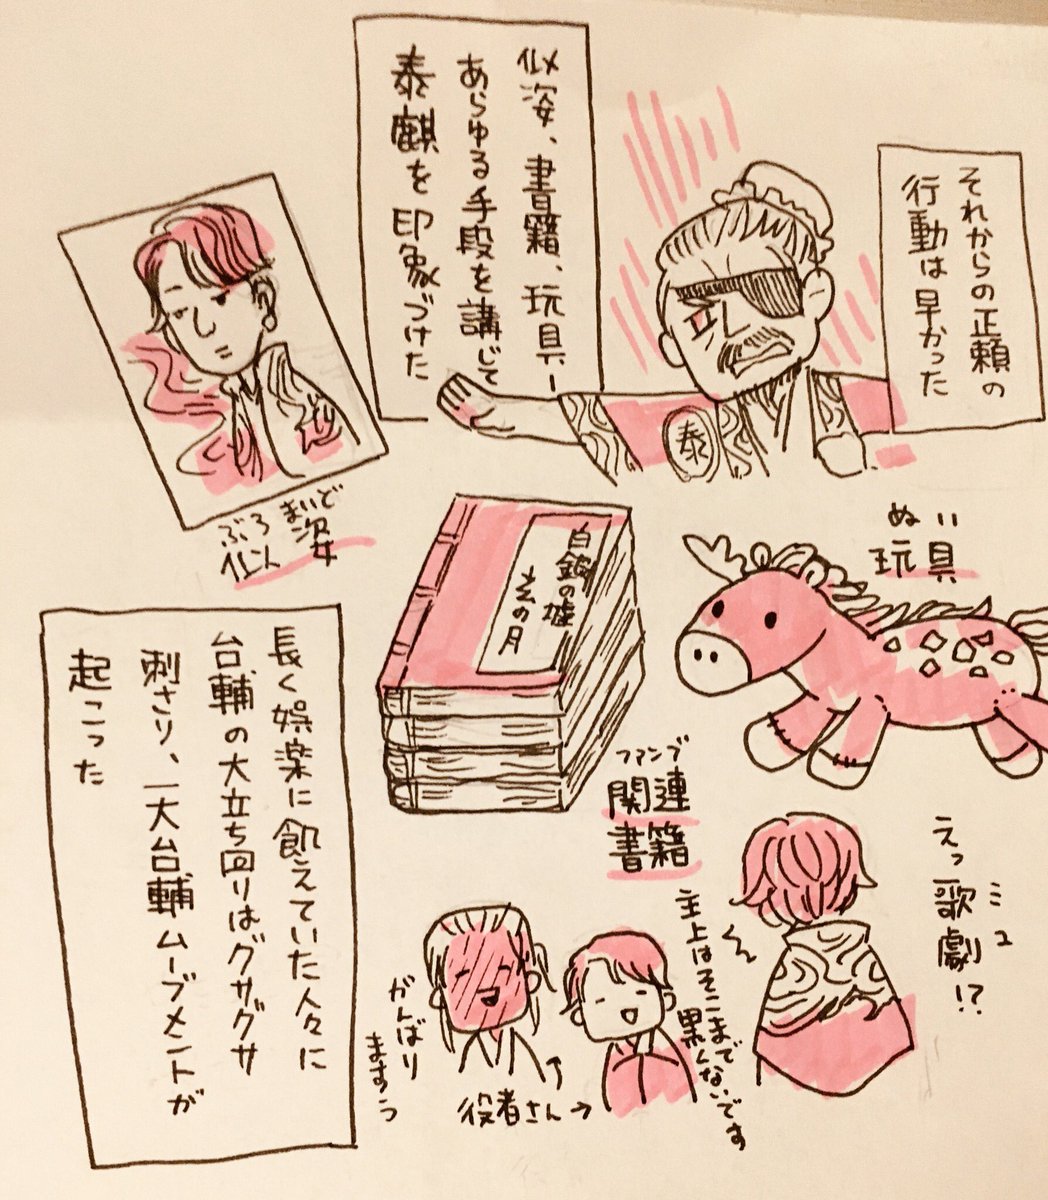 それからの正頼の
行動は早かった
似姿、書籍、玩具ー
あらゆる手段を講じて
泰麒を印象づけた
泰
ぶろまいど
似姿
白銀の墟
玄の月
ぬい
玩具
ファンブ
関連
書籍
えっ歌劇!?
ミュ
主上はそこまで
黒くないです
がんばり
←役者さん→
長く娯楽に飢えていた人々に
台輔の大立ち回りはグサグサ
刺さり、一大台輔ムーブメントが
起こった